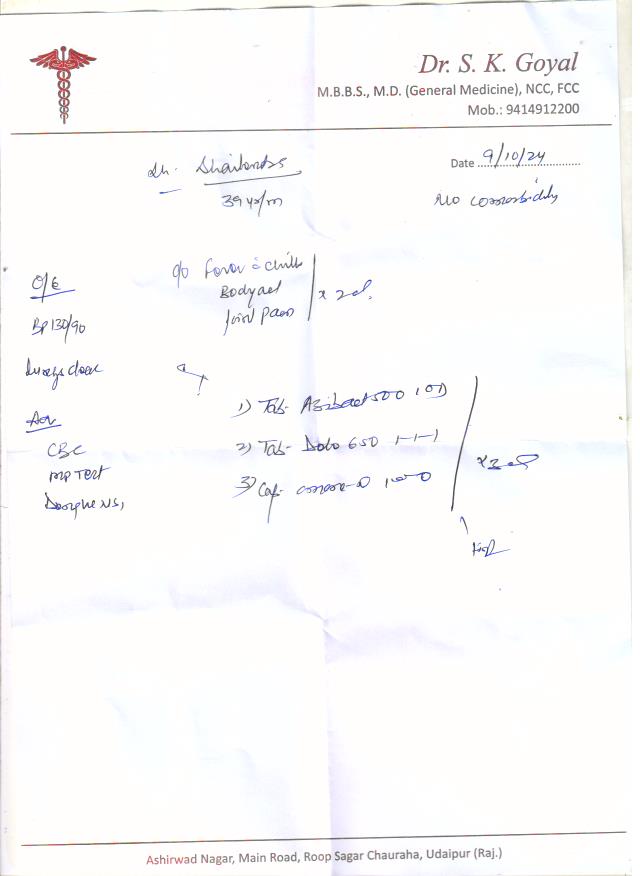 Dr. S. K. Goyal
M.B.B.S., M.D. (General Medicine), NCC, FCC
Mob.: 9414912200
Date 9/10/24
39 yr/m
No comorbidity
O/E
c/o Fever c chills
Bodyache
Joint Pain
x 2d.
BP 130/90
Lungs clear
Adv
CBC
MP Test
Dengue NS1
1) Tab- 500 1 OD
2) Tab- Dolo 650 1-1-1
3) Cap-
x 3d
Ashirwad Nagar, Main Road, Roop Sagar Chauraha, Udaipur (Raj.)